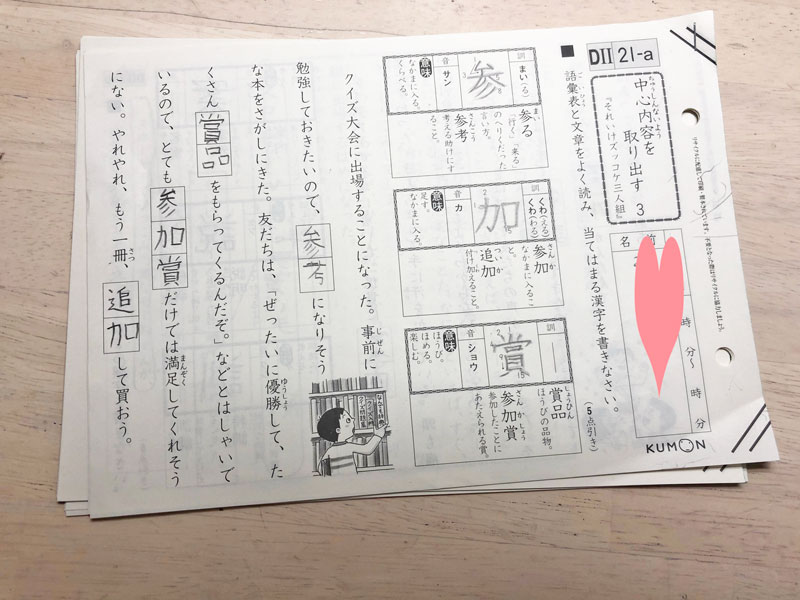 DⅡ 21-a
中心内容を
取り出す 3
『それいけズッコケ三人組』
名前
時 分～ 時 分
KUMON
■ 語彙表と文章をよく読み、当てはまる漢字を書きなさい。
(5点引き)
参
訓 まい(る)
音 サン
意味 なかまに入る。くらべる。
参る
「行く」「来る」のへりくだった言い方。
参考
考える助けにすること。
加
訓 くわ(える) くわ(わる)
音 カ
意味 足す。なかまに入る。
参加
なかまに入ること。
追加
付け加えること。
賞
訓 ―
音 ショウ
意味 ほうび。ほめる。楽しむ。
賞品
ほうびの品物。
参加賞
参加したことにあたえられる賞。
クイズ大会に出場することになった。事前に
勉強しておきたいので、参考になりそう
な本をさがしにきた。友だちは、「ぜったいに優勝して、た
くさん賞品をもらってくるんだぞ。」などとはしゃいで
いるので、とても参加賞だけでは満足してくれそう
にない。やれやれ、もう一冊、追加して買おう。